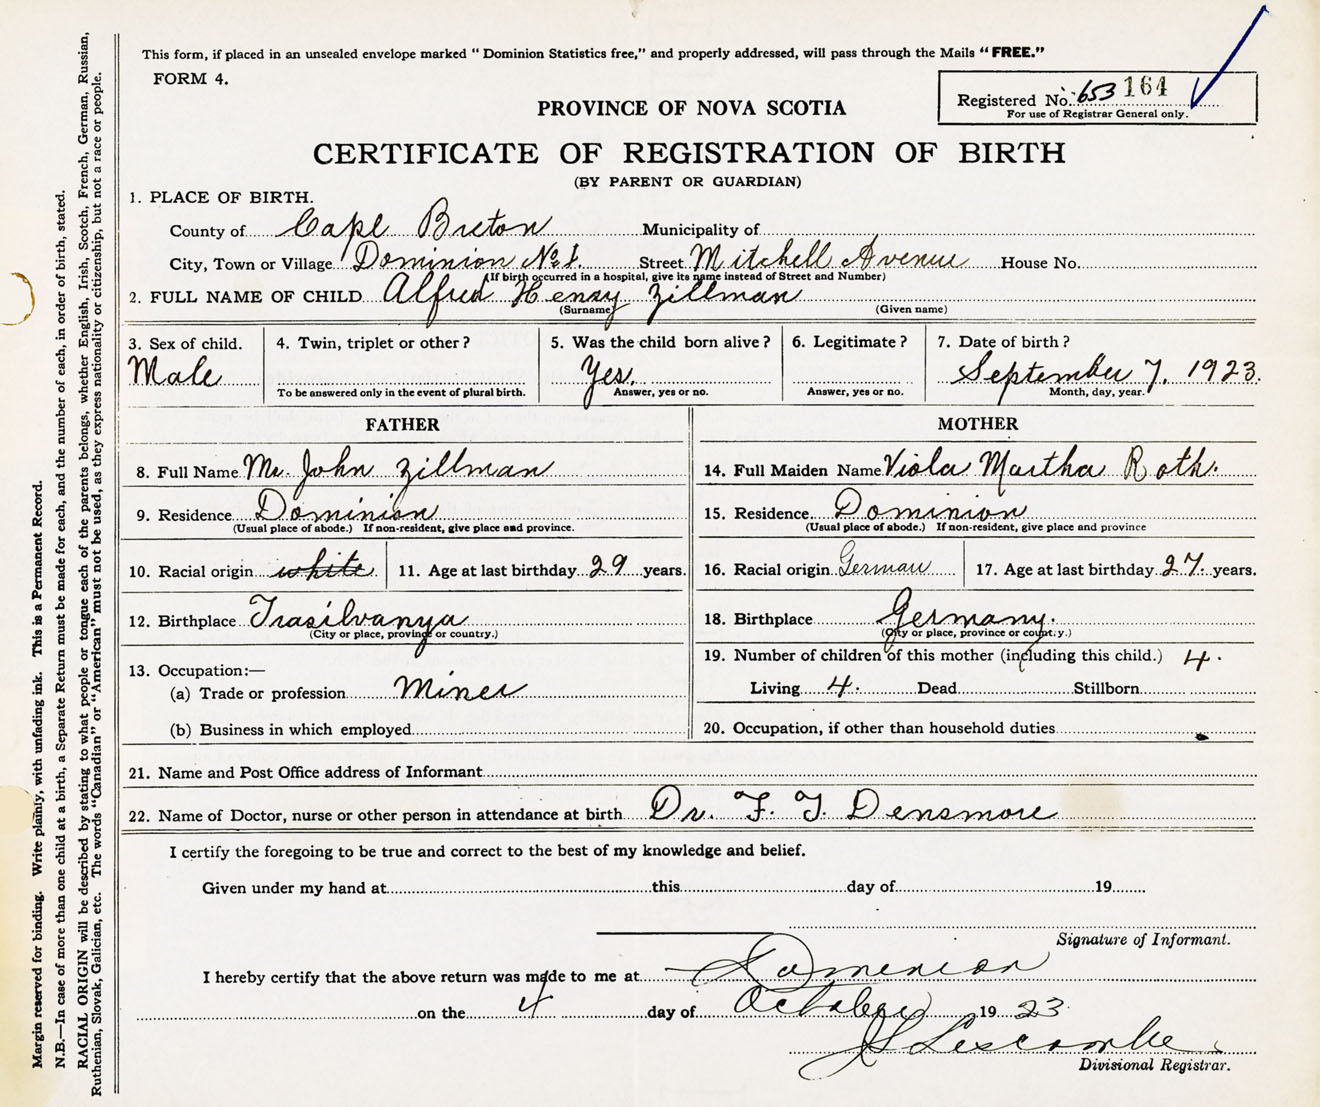 This form, if placed in an unsealed envelope marked "Dominion Statistics free," and properly addressed, will pass through the Mails "FREE."
FORM 4.
Registered No. 653 164
For use of Registrar General only.
PROVINCE OF NOVA SCOTIA
CERTIFICATE OF REGISTRATION OF BIRTH
(BY PARENT OR GUARDIAN)
1. PLACE OF BIRTH.
County of Cape Breton Municipality of
City, Town or Village Dominion No 1. Street Mitchell Avenue House No.
(If birth occurred in a hospital, give its name instead of Street and Number)
2. FULL NAME OF CHILD Alfred Henry Zillman
(Surname) (Given name)
3. Sex of child. 4. Twin, triplet or other? 5. Was the child born alive? 6. Legitimate? 7. Date of birth?
Male Yes. September 7, 1923.
To be answered only in the event of plural birth. Answer, yes or no. Answer, yes or no. Month, day, year.
FATHER MOTHER
8. Full Name Mr. John Zillman 14. Full Maiden Name Viola Martha Roth.
9. Residence Dominion 15. Residence Dominion
(Usual place of abode.) If non-resident, give place and province. (Usual place of abode.) If non-resident, give place and province
10. Racial origin white 11. Age at last birthday 29 years. 16. Racial origin German 17. Age at last birthday 27 years.
12. Birthplace Trasilvanya 18. Birthplace Germany.
(City or place, province or country.) (City or place, province or country.)
13. Occupation:— 19. Number of children of this mother (including this child.) 4.
(a) Trade or profession Miner Living 4. Dead Stillborn
(b) Business in which employed 20. Occupation, if other than household duties
21. Name and Post Office address of Informant
22. Name of Doctor, nurse or other person in attendance at birth Dr. F. T. Densmore
I certify the foregoing to be true and correct to the best of my knowledge and belief.
Given under my hand at this day of 19
Signature of Informant.
I hereby certify that the above return was made to me at Dominion
on the 4 day of October 1923
Lescombe
Divisional Registrar.
Margin reserved for binding. Write plainly, with unfading ink. This is a Permanent Record.
N.B.—In case of more than one child at a birth, a Separate Return must be made for each, and the number of each, in order of birth, stated.
RACIAL ORIGIN will be described by stating to what people or tongue each of the parents belongs, whether English, Irish, Scotch, French, German, Russian,
Ruthenian, Slovak, Galician, etc. The words "Canadian" or "American" must not be used, as they express nationality or citizenship, but not a race or people.